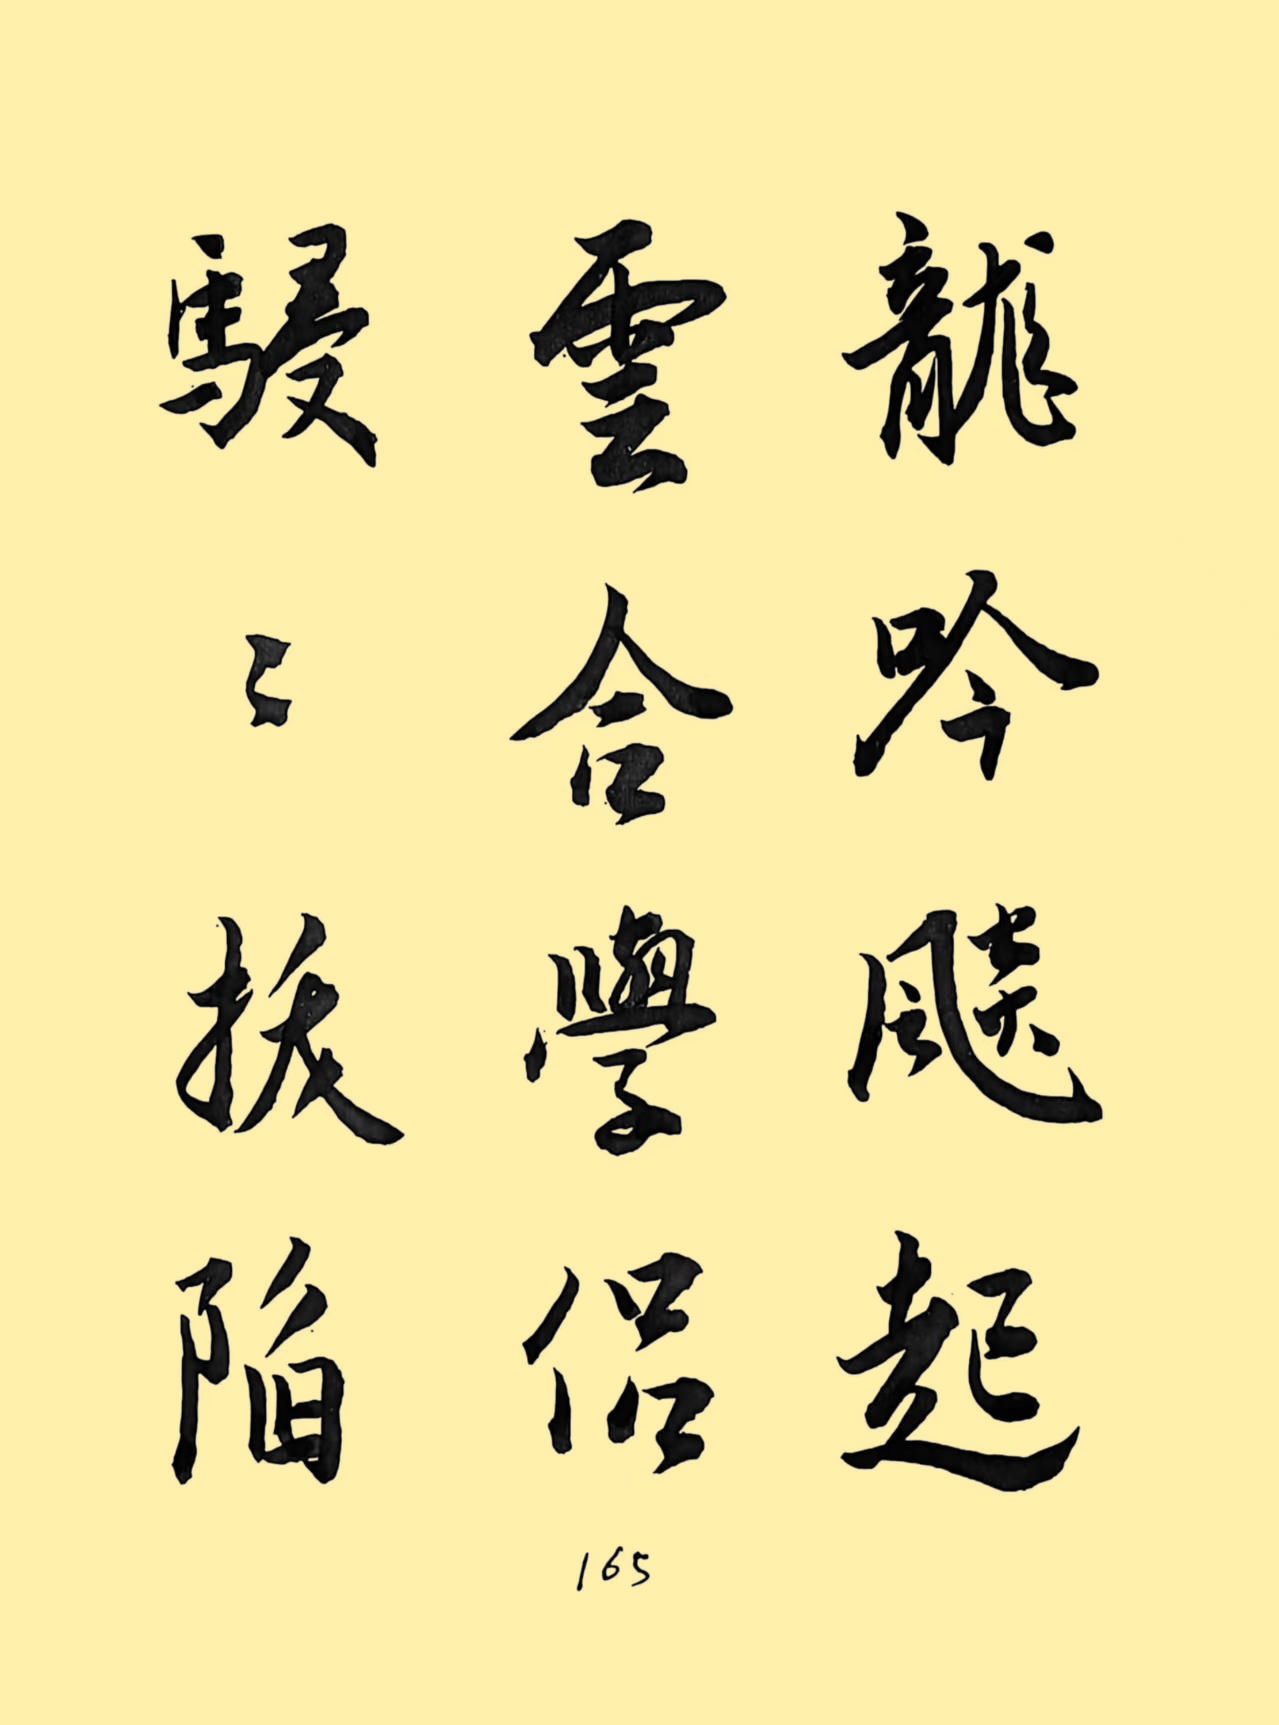 龍吟飈起
雲合學侶
駸〻拔陷
165